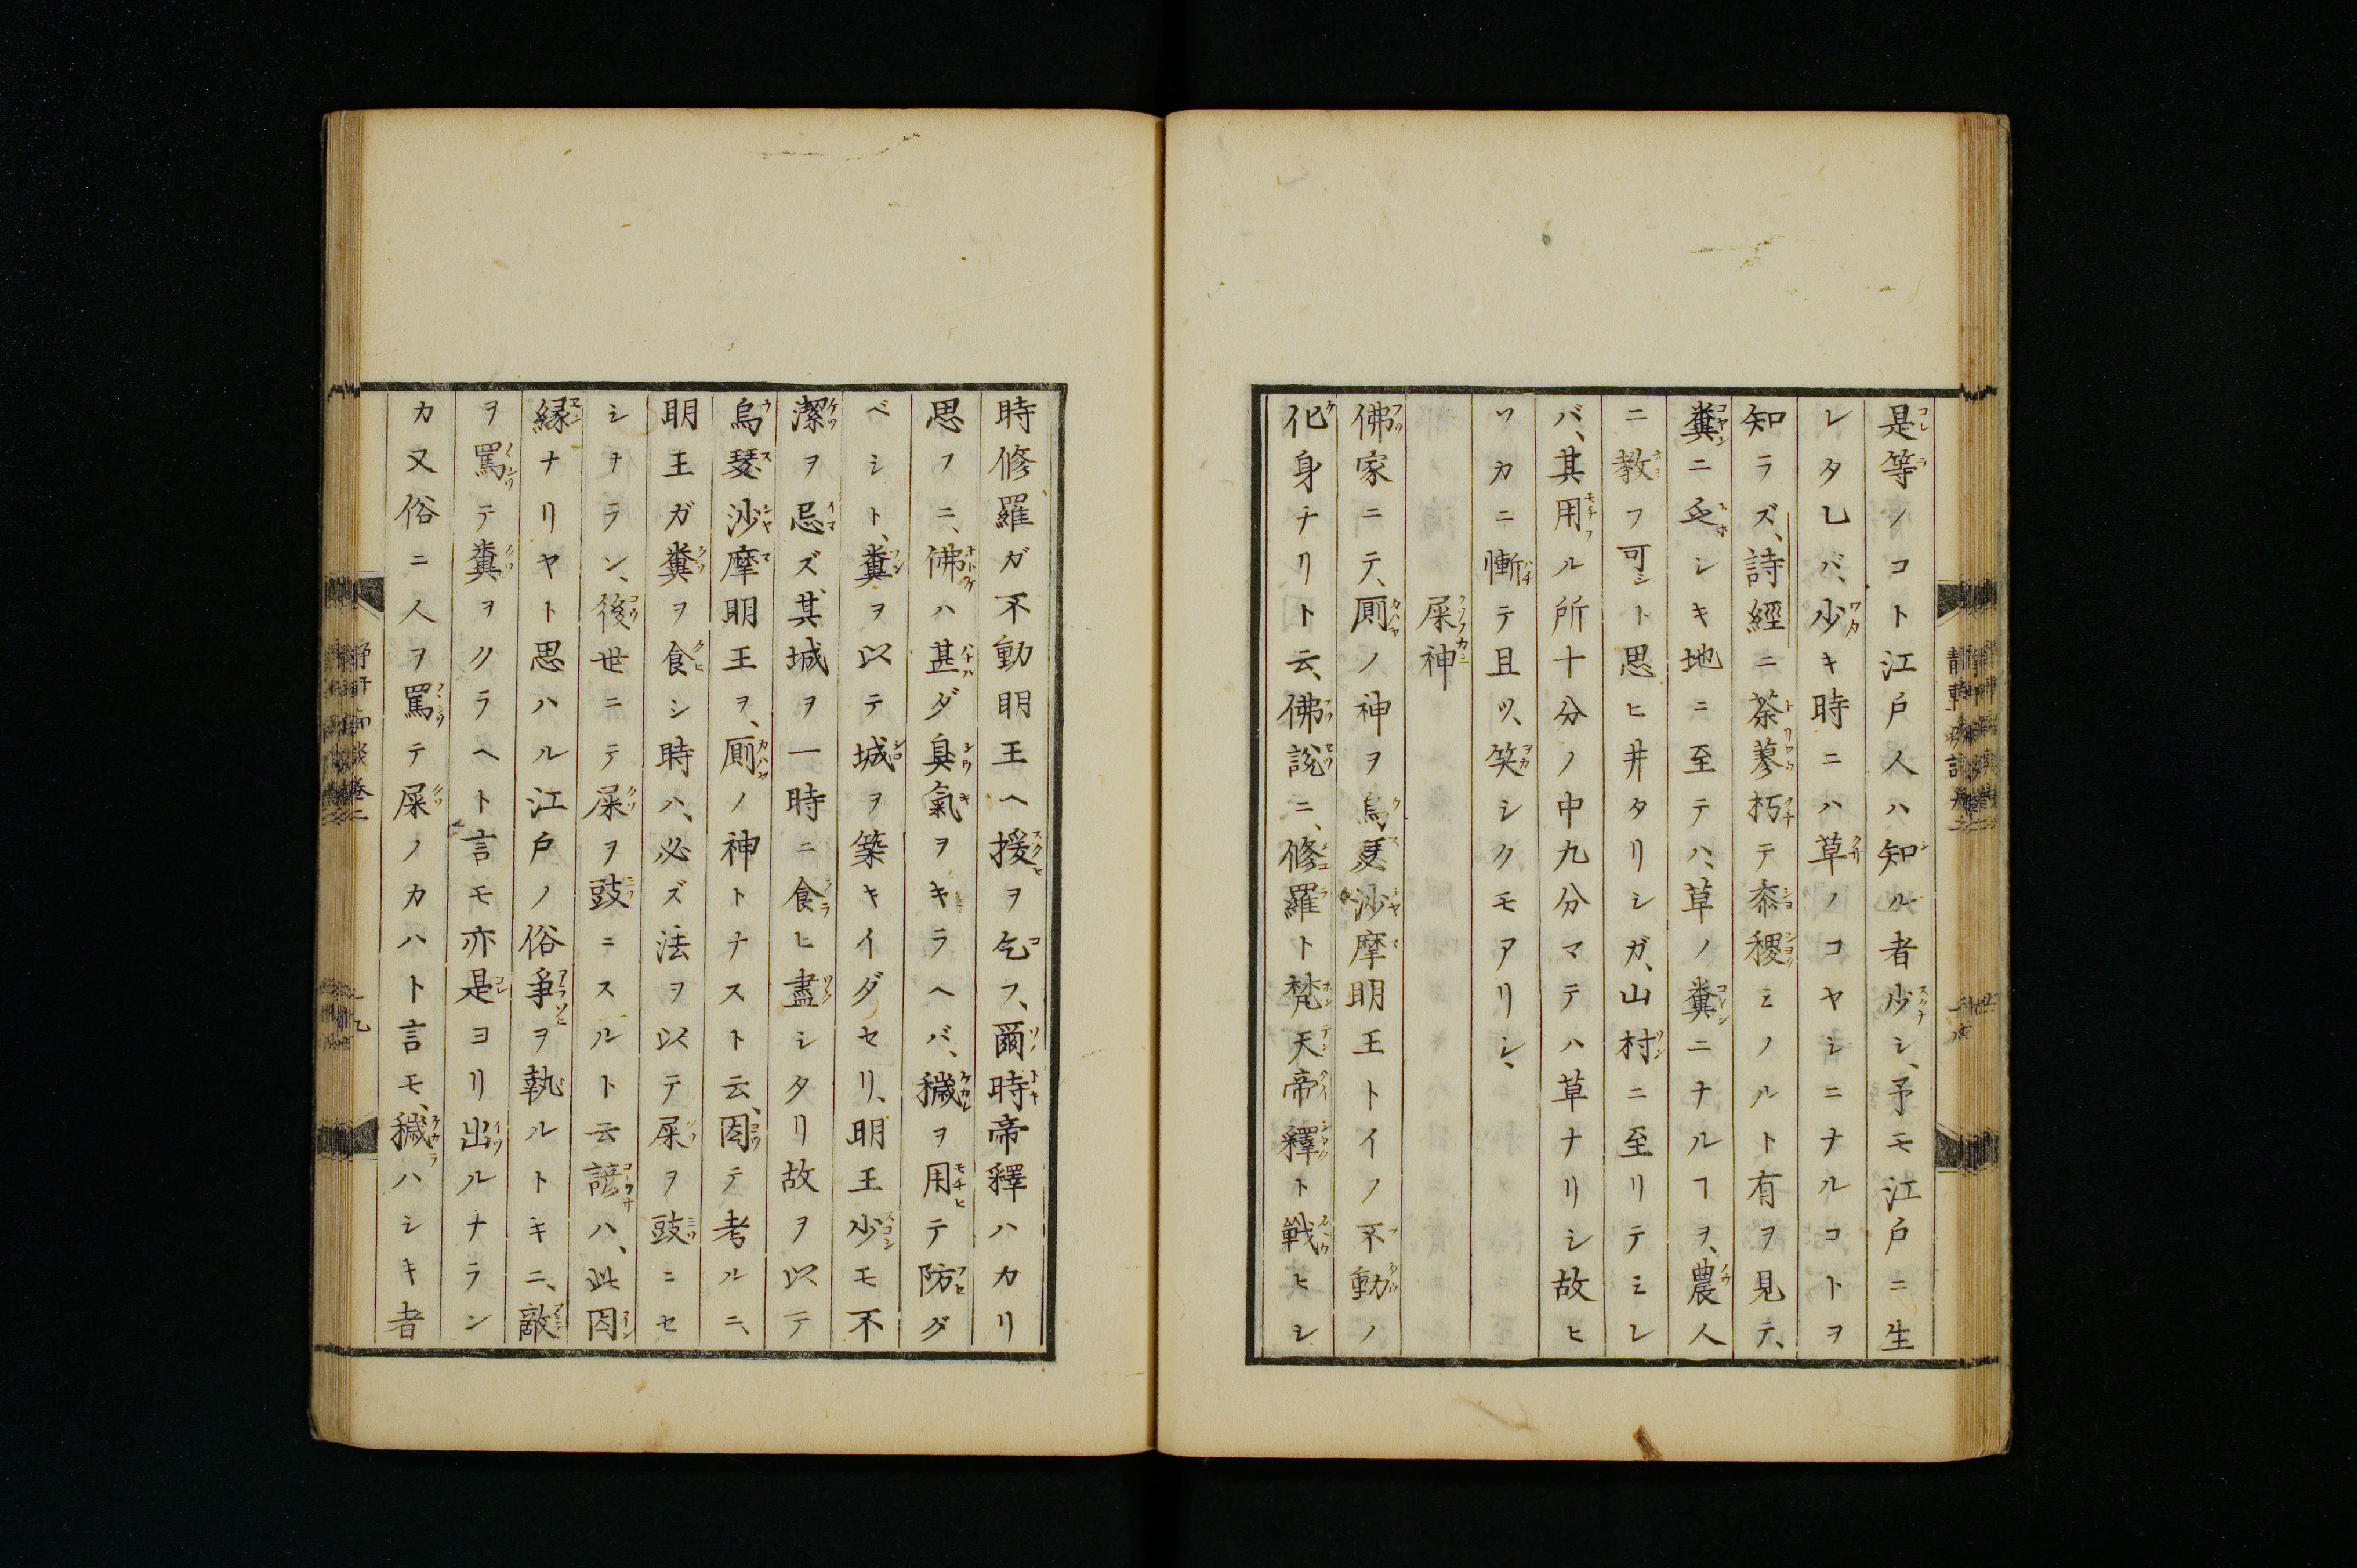 是等ノコト江戸人ハ知ル者少シ、予モ江戸ニ生
レタレバ、少キ時ニハ草ノコヤシニナルコトヲ
知ラズ、詩經ニ荼蓼朽テ黍稷ミノルト有ヲ見テ、
糞ニ乏シキ地ニ至テハ、草ノ糞ニナルヿヲ、農人
ニ教フ可シト思ヒ井タリシガ、山村ニ至リテミレ
バ、其用ル所十分ノ中九分マテハ草ナリシ故ヒ
ソカニ慚テ且ツ、笑シクモアリシ、
屎神
佛家ニテ、厠ノ神ヲ烏瑟沙摩明王トイフ不動ノ
化身ナリト云、佛說ニ、修羅ト梵天帝釋ト戰ヒシ
時修羅ガ不動明王ヘ援ヲ乞フ、爾時帝釋ハカリ
思フニ、佛ハ甚ダ臭氣ヲキラヘバ、穢ヲ用テ防グ
ベシト、糞ヲ以テ城ヲ築キイダセリ、明王少モ不
潔ヲ忌ズ、其城ヲ一時ニ食ヒ盡シタリ故ヲ以テ
烏瑟沙摩明王ヲ、厠ノ神トナスト云、因テ考ルニ、
明王ガ糞ヲ食シ時ハ、必ズ法ヲ以テ屎ヲ豉ニセ
シナラン、後世ニテ屎ヲ豉ニスルト云諺ハ、此因
縁ナリヤト思ハル江戸ノ俗爭ヲ執ルトキニ、敵
ヲ罵テ糞ヲクラヘト言モ亦是ヨリ出ルナラン
カ又俗ニ人ヲ罵テ屎ノカハト言モ、穢ハシキ者